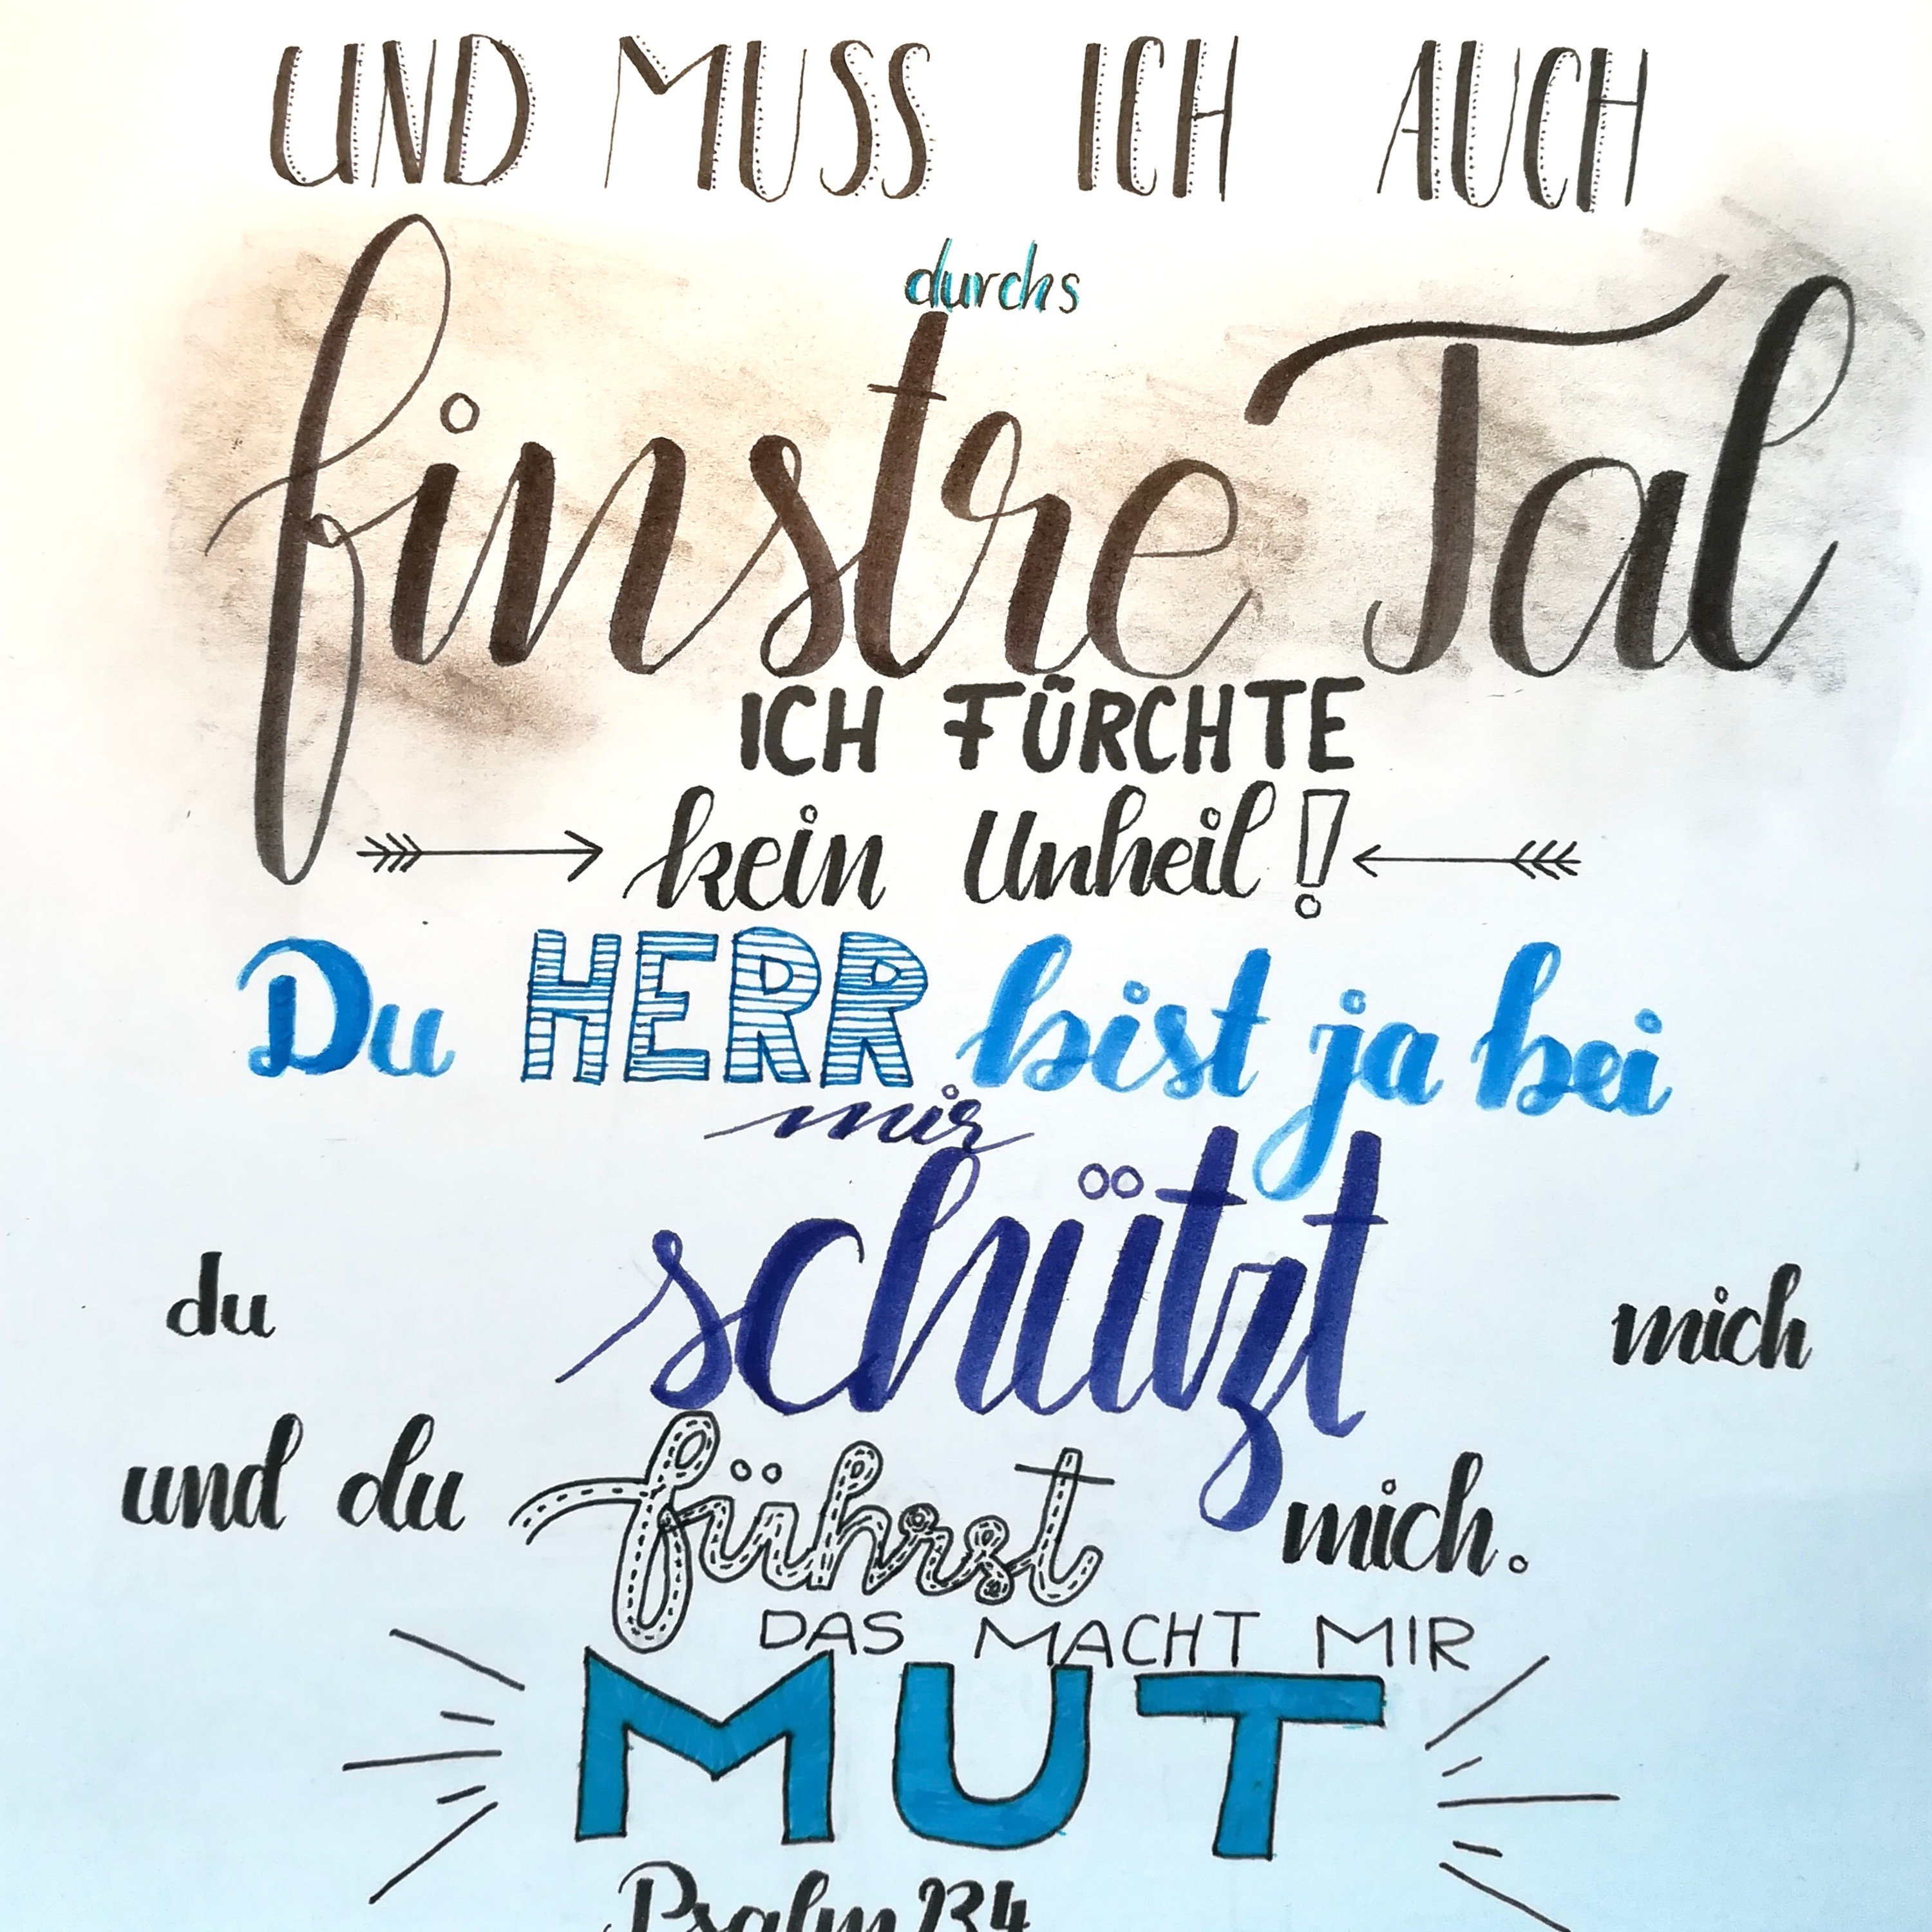 UND MUSS ICH AUCH
durchs
finstre Tal
ICH FÜRCHTE
kein Unheil!
Du HERR bist ja bei
mir
du schützt mich
und du führst mich.
DAS MACHT MIR
MUT
Psalm 23,4